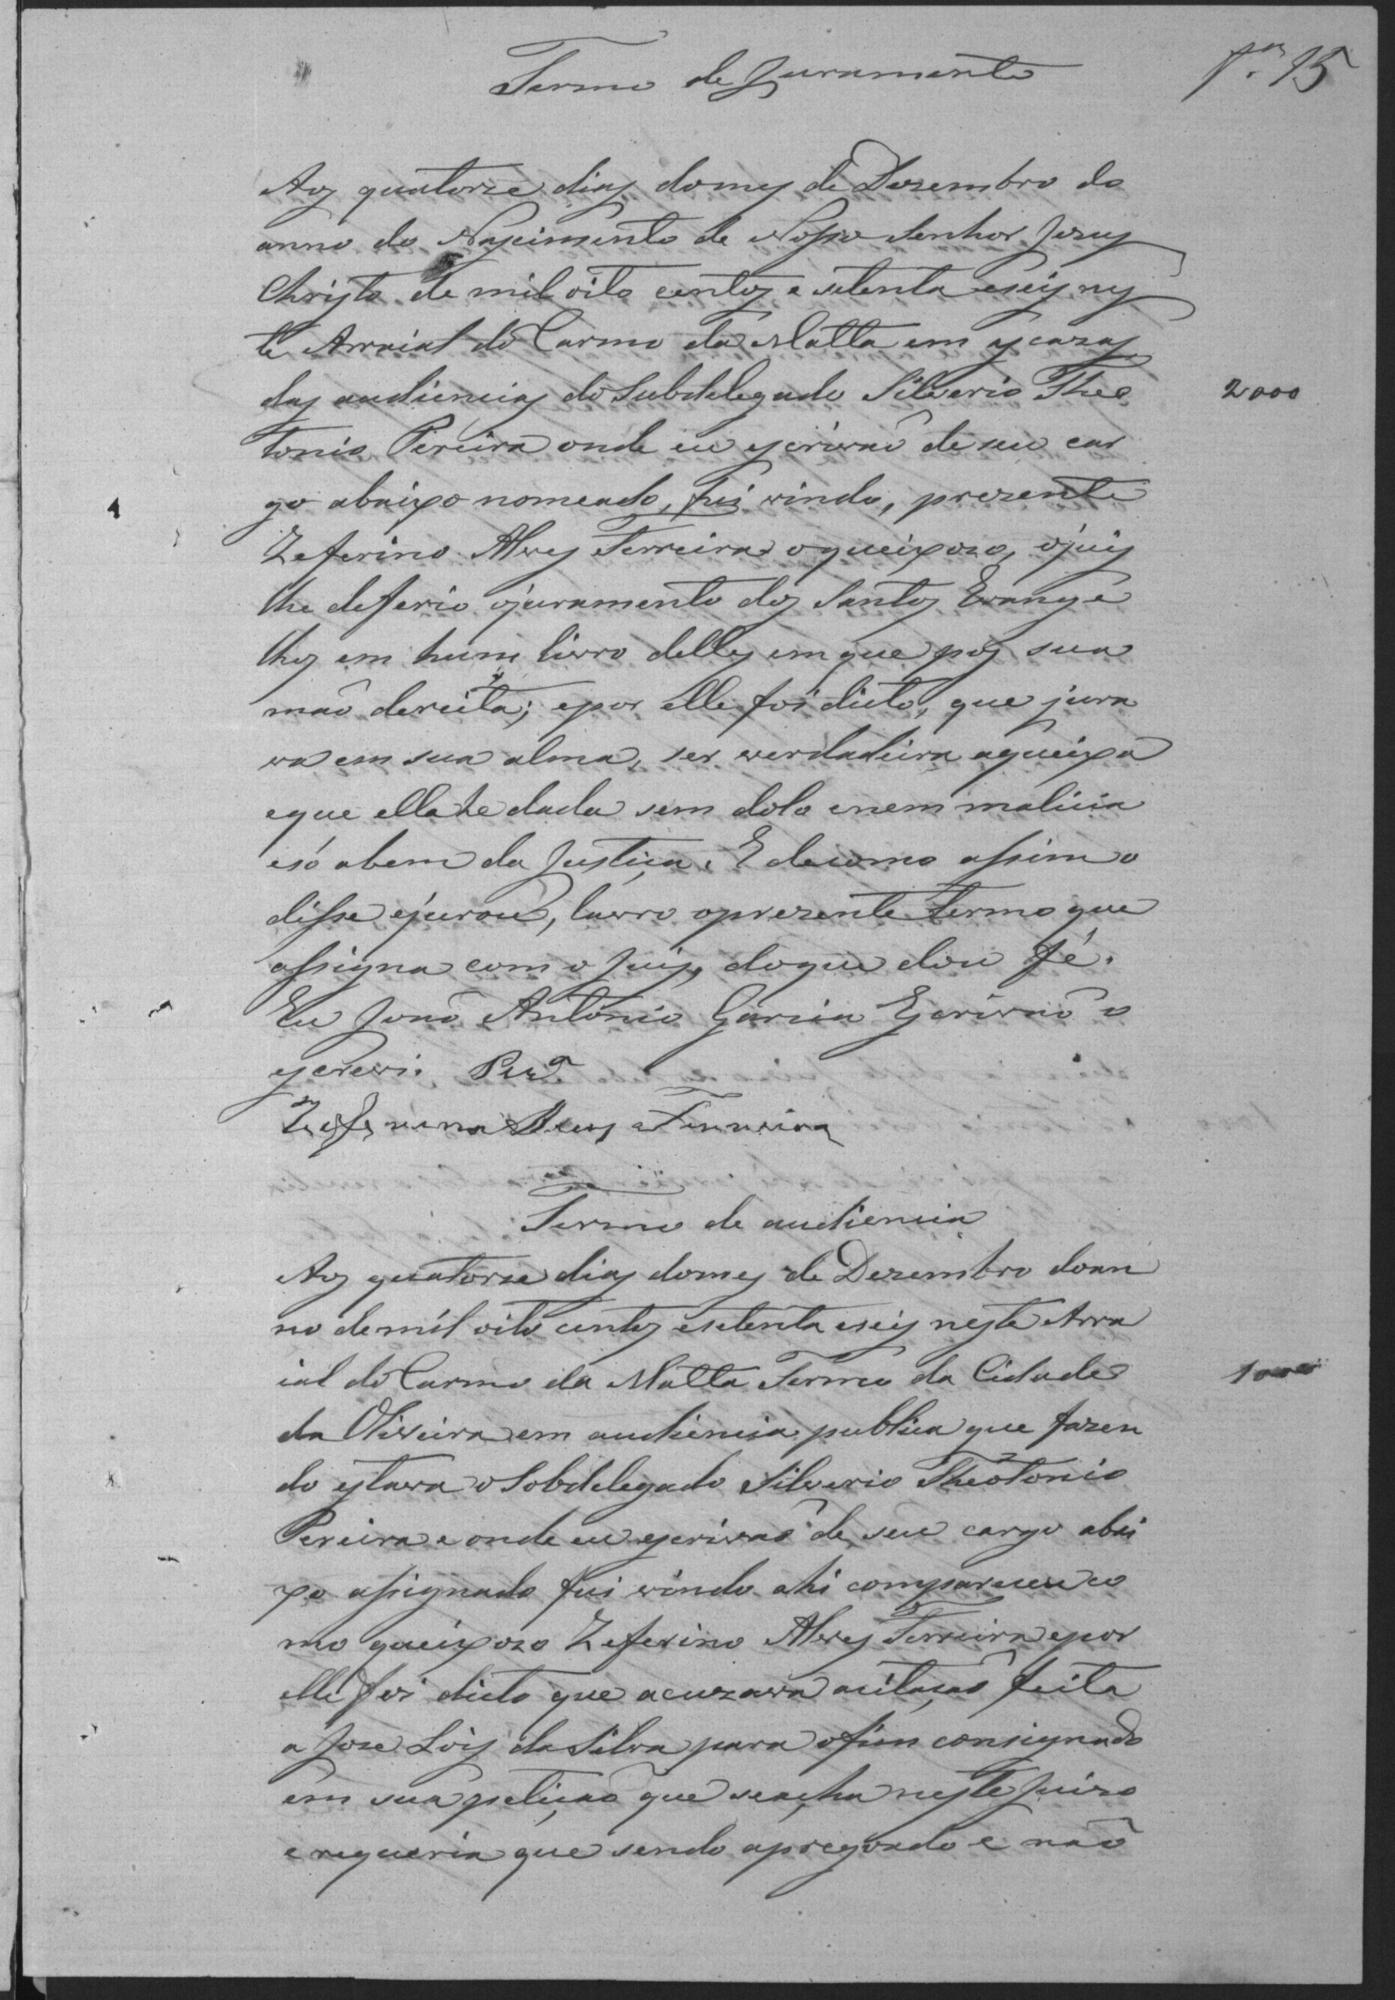 Termo de Juramento
fs. 15
Aos quatorze dias do mes de Dezembro do
anno do Nascimento de Nosso Senhor Jesus
Christo de mil oito centos e setenta e seis nes
te Arraial do Carmo da Matta em as cazas
das audiencias do Subdelegado Silverio Theo
2000
tonio Pereira onde eu escrivaõ de seu car
go abaixo nomeado, fui vindo, prezente
Zeferino Alves Ferreira o queixoso, o juis
lhe deferio o juramento dos Santos Evange
lhos em hum livro delles em que pos sua
maõ dereita; e por elle foi dicto, que jura
va em sua alma, ser verdadeira a queixa
e que ella he dada sem dolo e nem malicia
e só a bem da Justiça. E de como assim o
disse e jurou, lavro o prezente termo que
assigna com o Juis, do que dou fé.
Eu Joaõ Antonio Garcia Escrivaõ o
escrevi. Perª
Zeferino Alves Ferreira
Termo de audiencia
Aos quatorze dias do mes de Dezembro do an
no de mil oito centos e setenta e seis neste Arra
ial do Carmo da Matta Termo da Cidade
1000
da Oliveira em audiencia publica que fazen
do estava o Sobdelegado Silverio Theotonio
Pereira e onde eu escrivaõ de seu cargo abai
xo assignado fui vindo ahi compareceu co
mo queixozo Zeferino Alves Ferreira e por
elle foi dicto que acuzava a citaçaõ feita
a Joze Lois da Silva para o fim consignado
em sua petiçaõ que se acha neste Juizo
e requeria que sendo apregoado e naõ